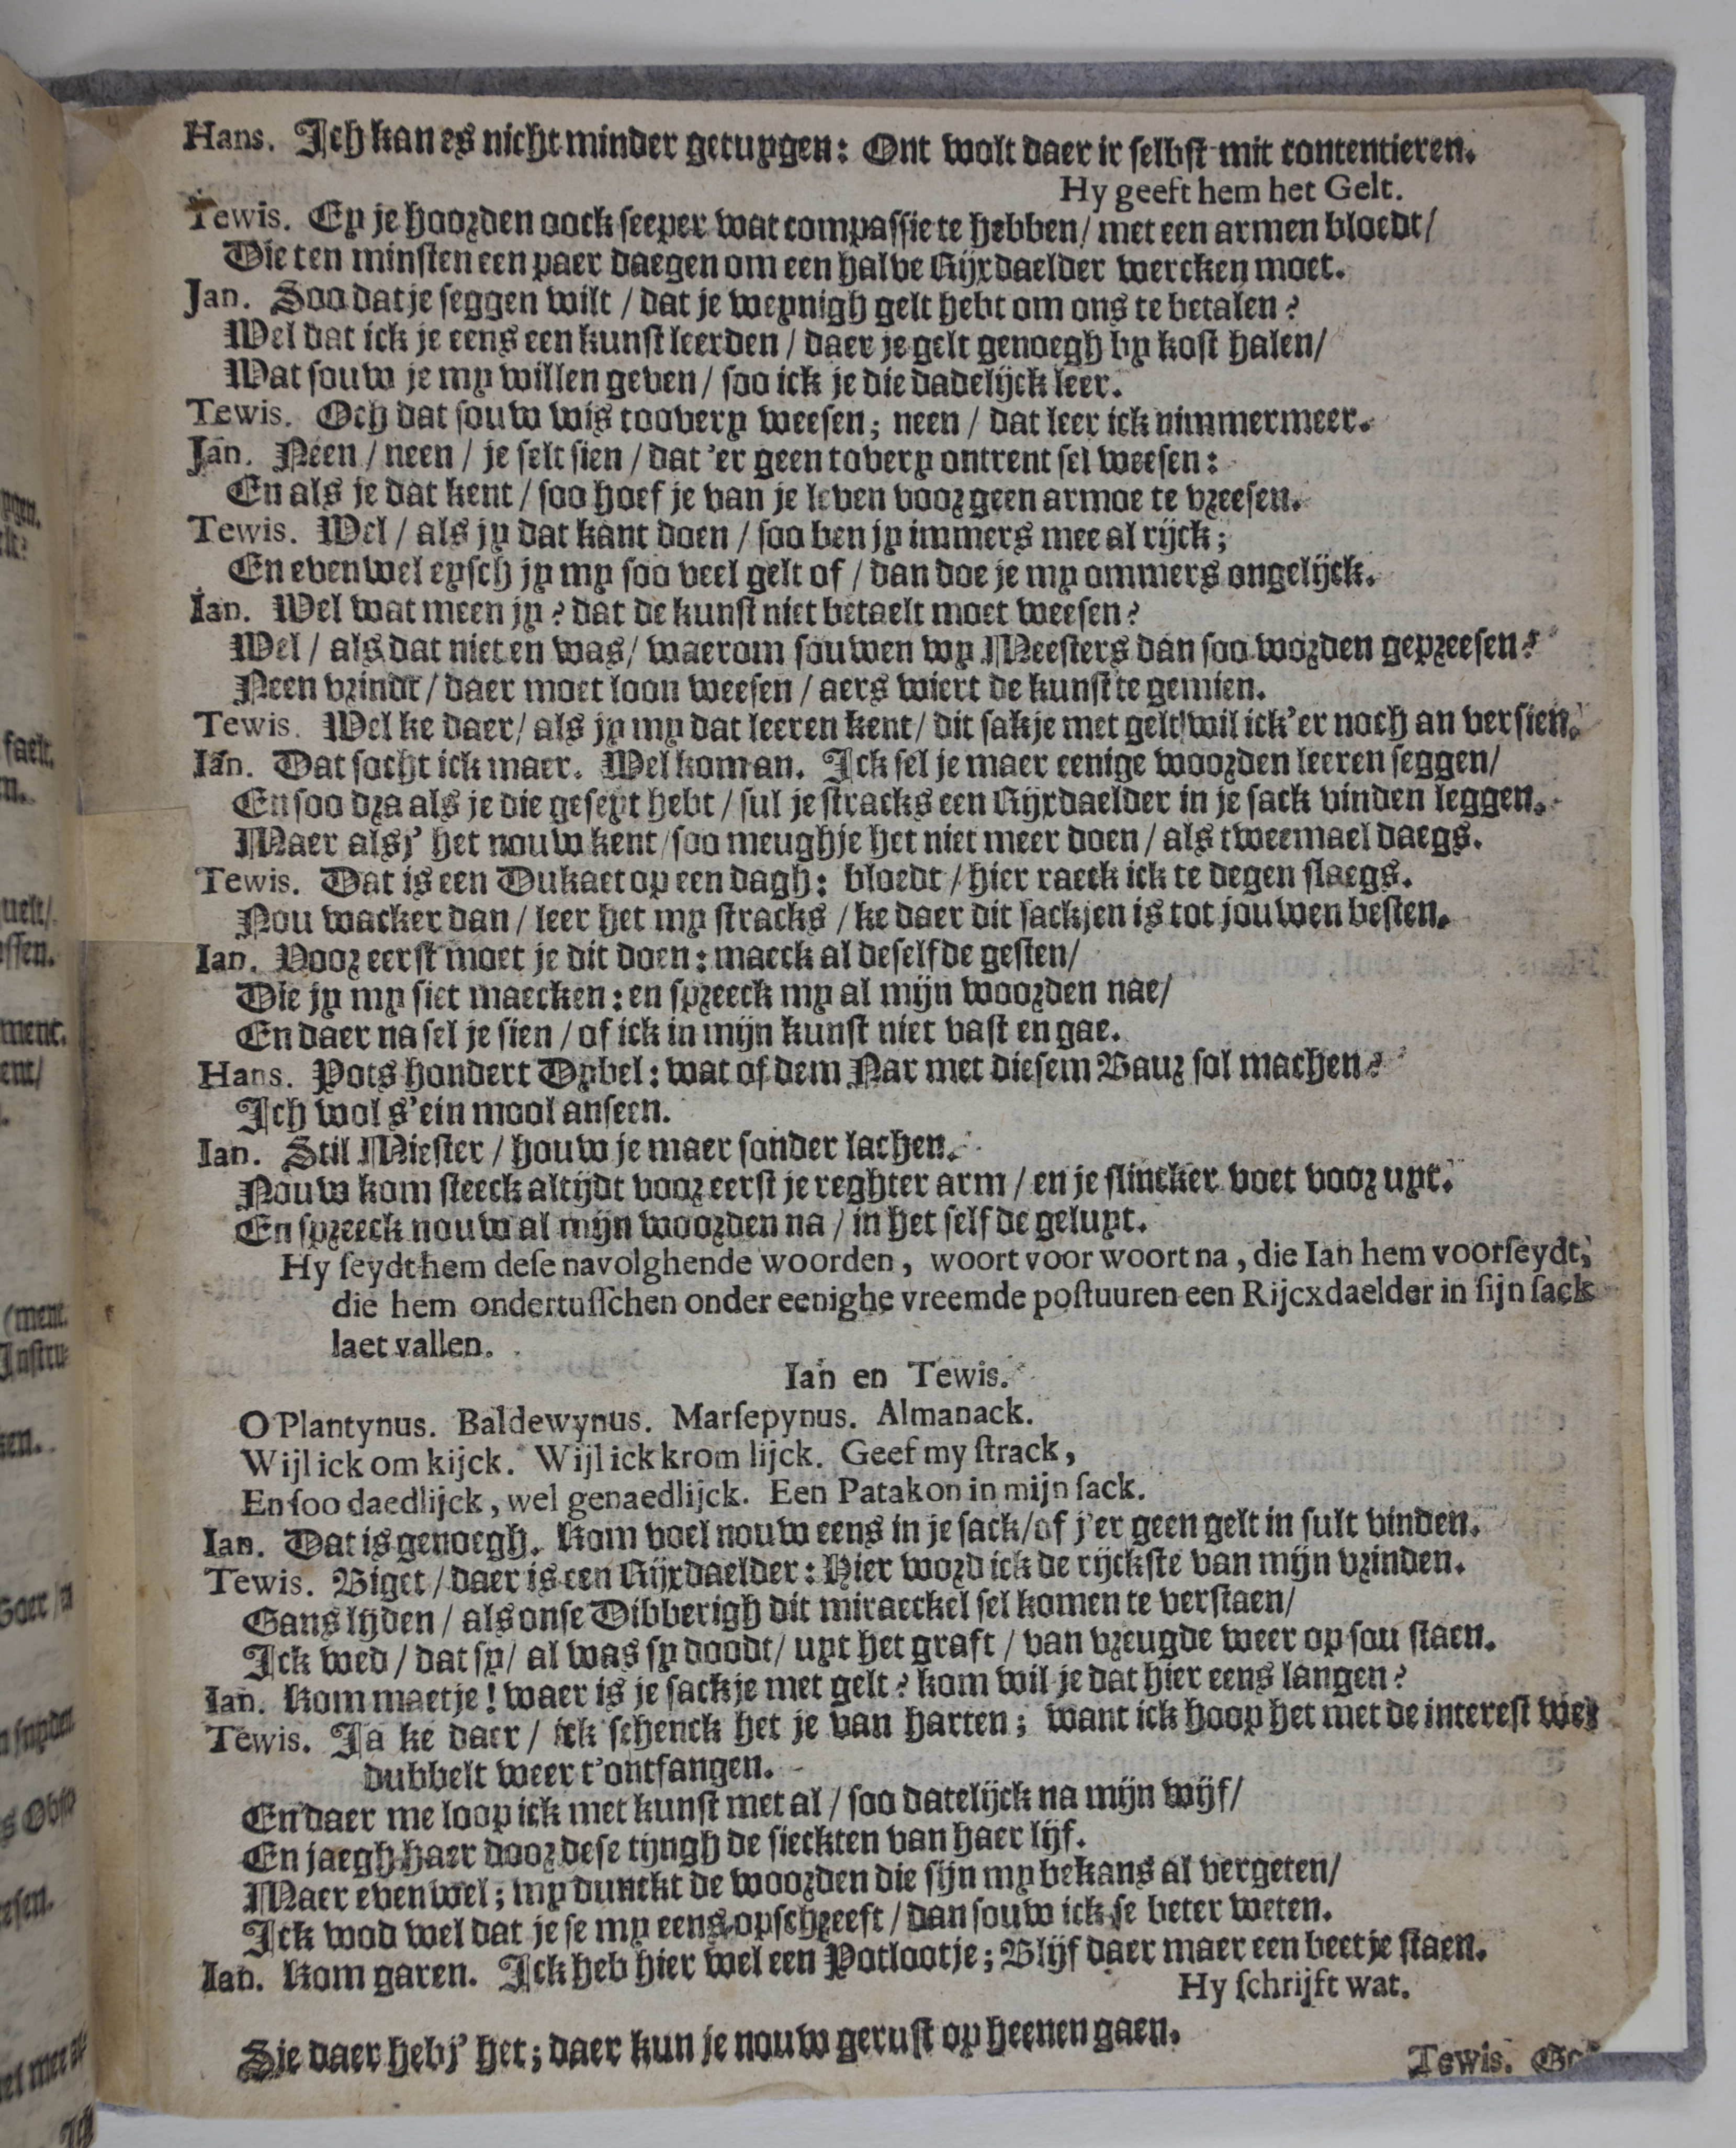 Hans. Ich kan es nicht minder getuygen: Ont wolt daer ir selbst mit contentieren.
Hy geeft hem het Gelt.
Tewis. Ey je hoorden oock seeper wat compassie te hebben/ met een armen bloedt/
Die ten minsten een paer daegen om een halve Rijxdaelder wercken moet.
Jan. Soo dat je seggen wilt / dat je weynigh gelt hebt om ons te betalen?
Wel dat ick je eens een kunst leerden / daer je gelt genoegh by kost halen/
Wat souw je my willen geven / soo ick je die dadelijck leer.
Tewis. Och dat souw wis toovery weesen; neen / dat leer ick nimmermeer.
Jan. Neen / neen / je selt sien / dat 'er geen tovery ontrent sel weesen:
En als je dat kent / soo hoef je van je leven voor geen armoe te vreesen.
Tewis. Wel / als jy dat kant doen / soo ben jy immers mee al rijck;
En evenwel eysch jy my soo veel gelt of / dan doe je my ommers ongelijck.
Ian. Wel wat meen jy? dat de kunst niet betaelt moet weesen?
Wel / als dat niet en was/ waerom souwen wy Meesters dan soo worden gepreesen?
Neen vrindt / daer moet loon weesen / aers wiert de kunst te gemien.
Tewis. Wel ke daer/ als jy my dat leeren kent/ dit sakje met gelt wil ick'er noch an versien.
Ian. Dat socht ick maer. Wel koman. Ick sel je maer eenige woorden leeren seggen/
En soo dra als je die geseyt hebt / sul je stracks een Rijxdaelder in je sack vinden leggen.
Maer als j' het nouw kent/ soo meugh je het niet meer doen / als tweemael daegs.
Tewis. Dat is een Dukaet op een dagh: bloedt / hier raeck ick te degen slaegs.
Nou wacker dan / leer het my stracks / ke daer dit sackjen is tot jouwen besten.
Ian. Voor eerst moet je dit doen: maeck al deselfde gesten/
Die jy my siet maecken: en spreeck my al mijn woorden nae/
En daer na sel je sien / of ick in mijn kunst niet vast en gae.
Hans. Pots hondert Dybel: wat of dem Nar met diesem Baur sol machen?
Ich wol s'ein mool anseen.
Ian. Stil Miester / houw je maer sonder lachen.
Nouw kom steeck altijdt voor eerst je reghter arm / en je slincker voet voor uyt.
En spreeck nouw al mijn woorden na / in het selfde geluyt.
Hy seydt hem dese navolghende woorden, woort voor woort na, die Ian hem voorseydt,
die hem ondertusschen onder eenighe vreemde postuuren een Rijcxdaelder in sijn sack
laet vallen.
Ian en Tewis.
O Plantynus. Baldewynus. Marsepynus. Almanack.
Wijl ick om kijck. Wijl ick krom lijck. Geef my strack,
En soo daedlijck, wel genaedlijck. Een Patakon in mijn sack.
Ian. Dat is genoegh. Kom voel nouw eens in je sack/of j'er geen gelt in sult vinden.
Tewis. Biget / daer is een Rijxdaelder: Hier word ick de rijckste van mijn vrinden.
Gans lyden / als onse Dibberigh dit miraeckel sel komen te verstaen/
Ick wed / dat sy/ al was sy doodt/ uyt het graft / van vreugde weer op sou staen.
Ian. Kom maetje! waer is je sackje met gelt? kom wil je dat hier eens langen?
Tewis. Ja ke daer / ick schenck het je van harten; want ick hoop het met de interest wel
dubbelt weer t'ontfangen.
En daer me loop ick met kunst met al / soo datelijck na mijn wijf/
En jaegh haer door dese tijngh de sieckten van haer lijf.
Maer evenwel; my dunckt de woorden die sijn my bekans al vergeten/
Ick wod wel dat je se my eens opschreeft / dan souw ick se beter weten.
Ian. Kom garen. Ick heb hier wel een Potlootje; Blijf daer maer een beetje staen.
Hy schrijft wat.
Sie daer hebj' het; daer kun je nouw gerust op heenen gaen.
Tewis.